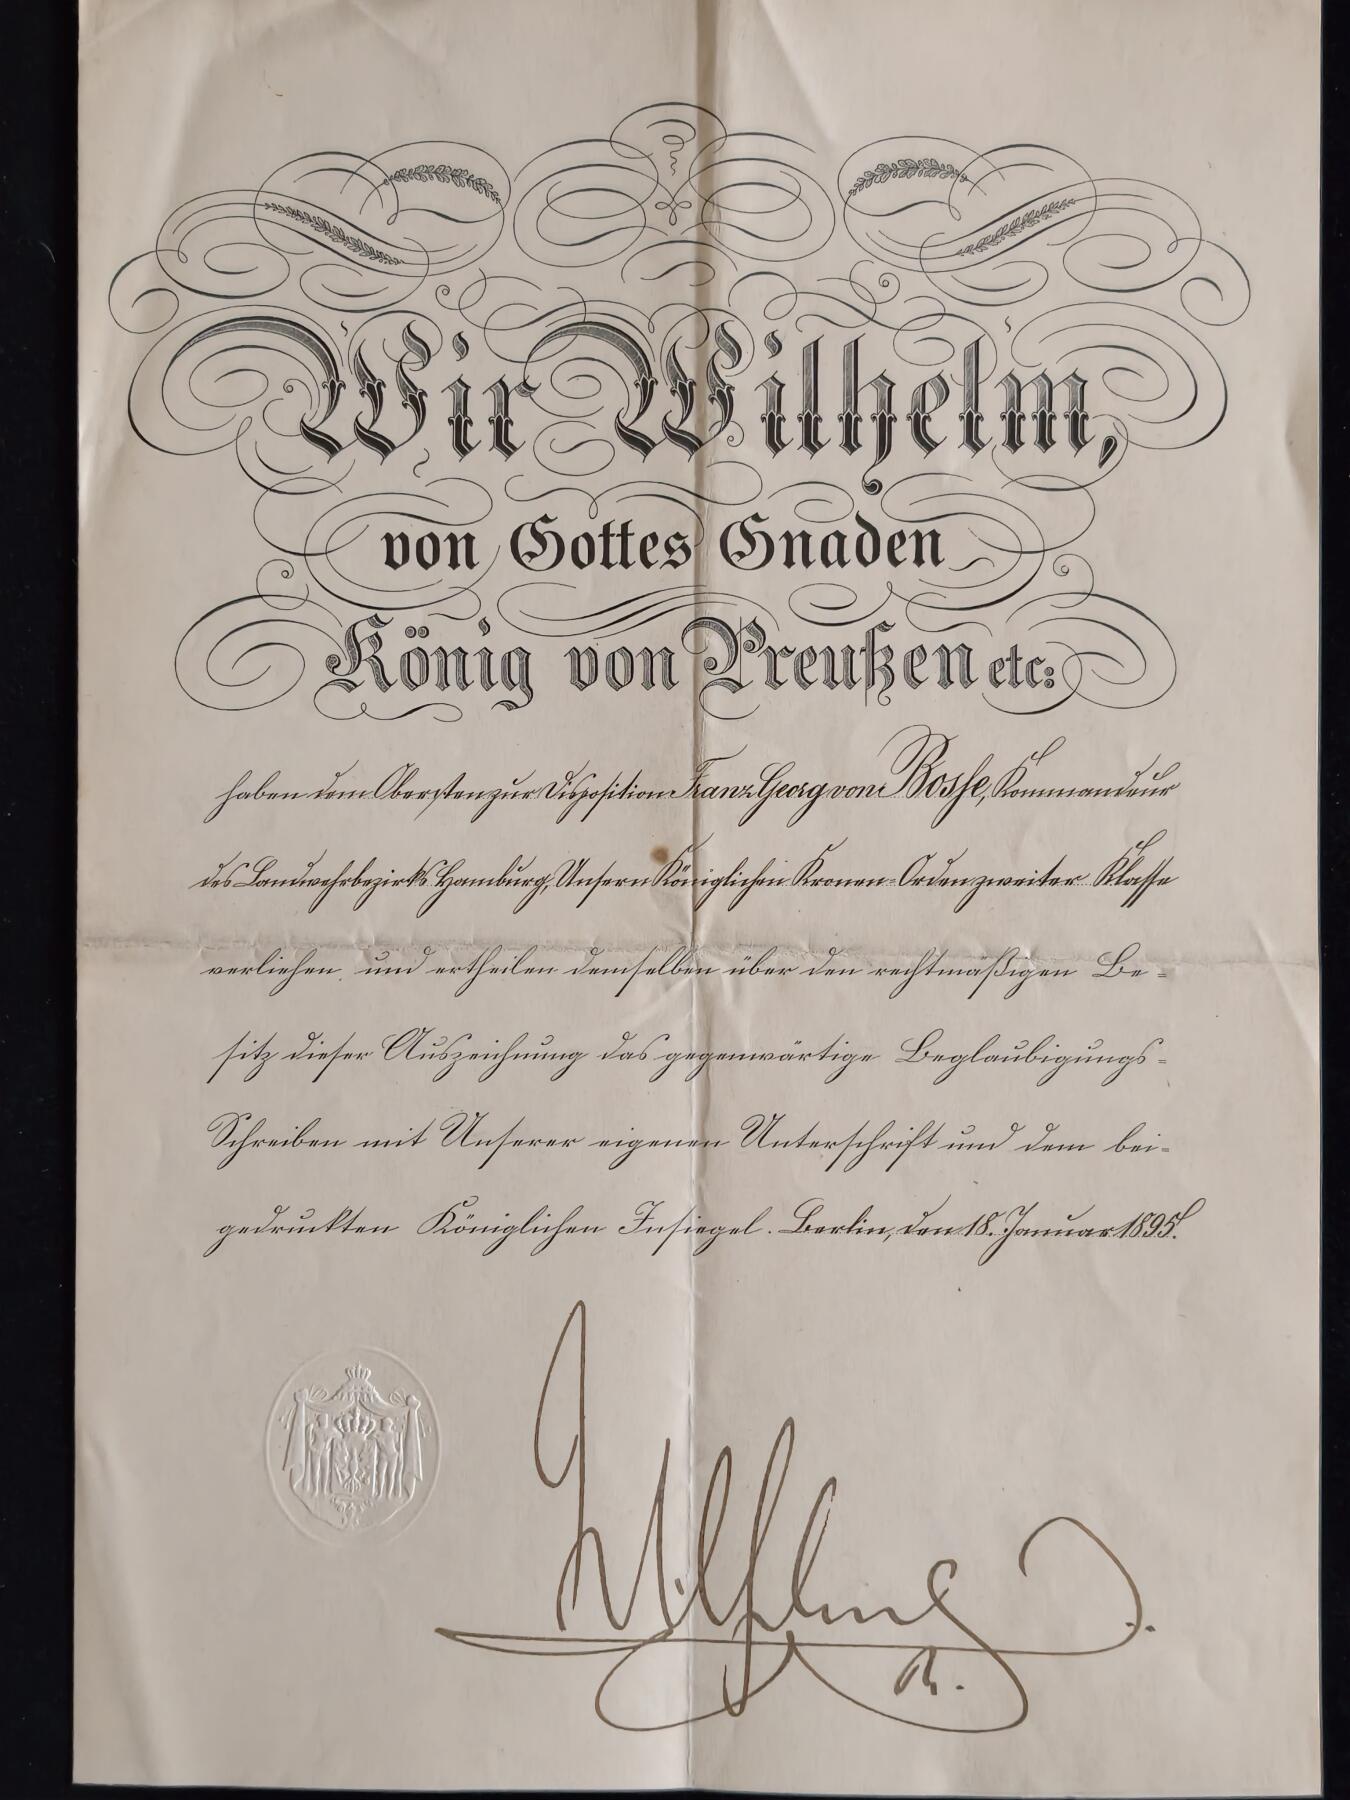 Wir Wilhelm,
von Gottes Gnaden
König von Preußen etc:
haben dem Obersten zur Disposition Franz Georg von Bosse, Kommandeur
des Landwehrbezirks Hamburg, Unsern Königlichen Kronen-Orden zweiter Klasse
verliehen und ertheilen demselben über den rechtmäßigen Be-
sitz dieser Auszeichnung das gegenwärtige Beglaubigungs-
Schreiben mit Unserer eigenen Unterschrift und dem bei-
gedruckten Königlichen Insiegel. Berlin, den 18. Januar 1895.
Wilhelm
R.